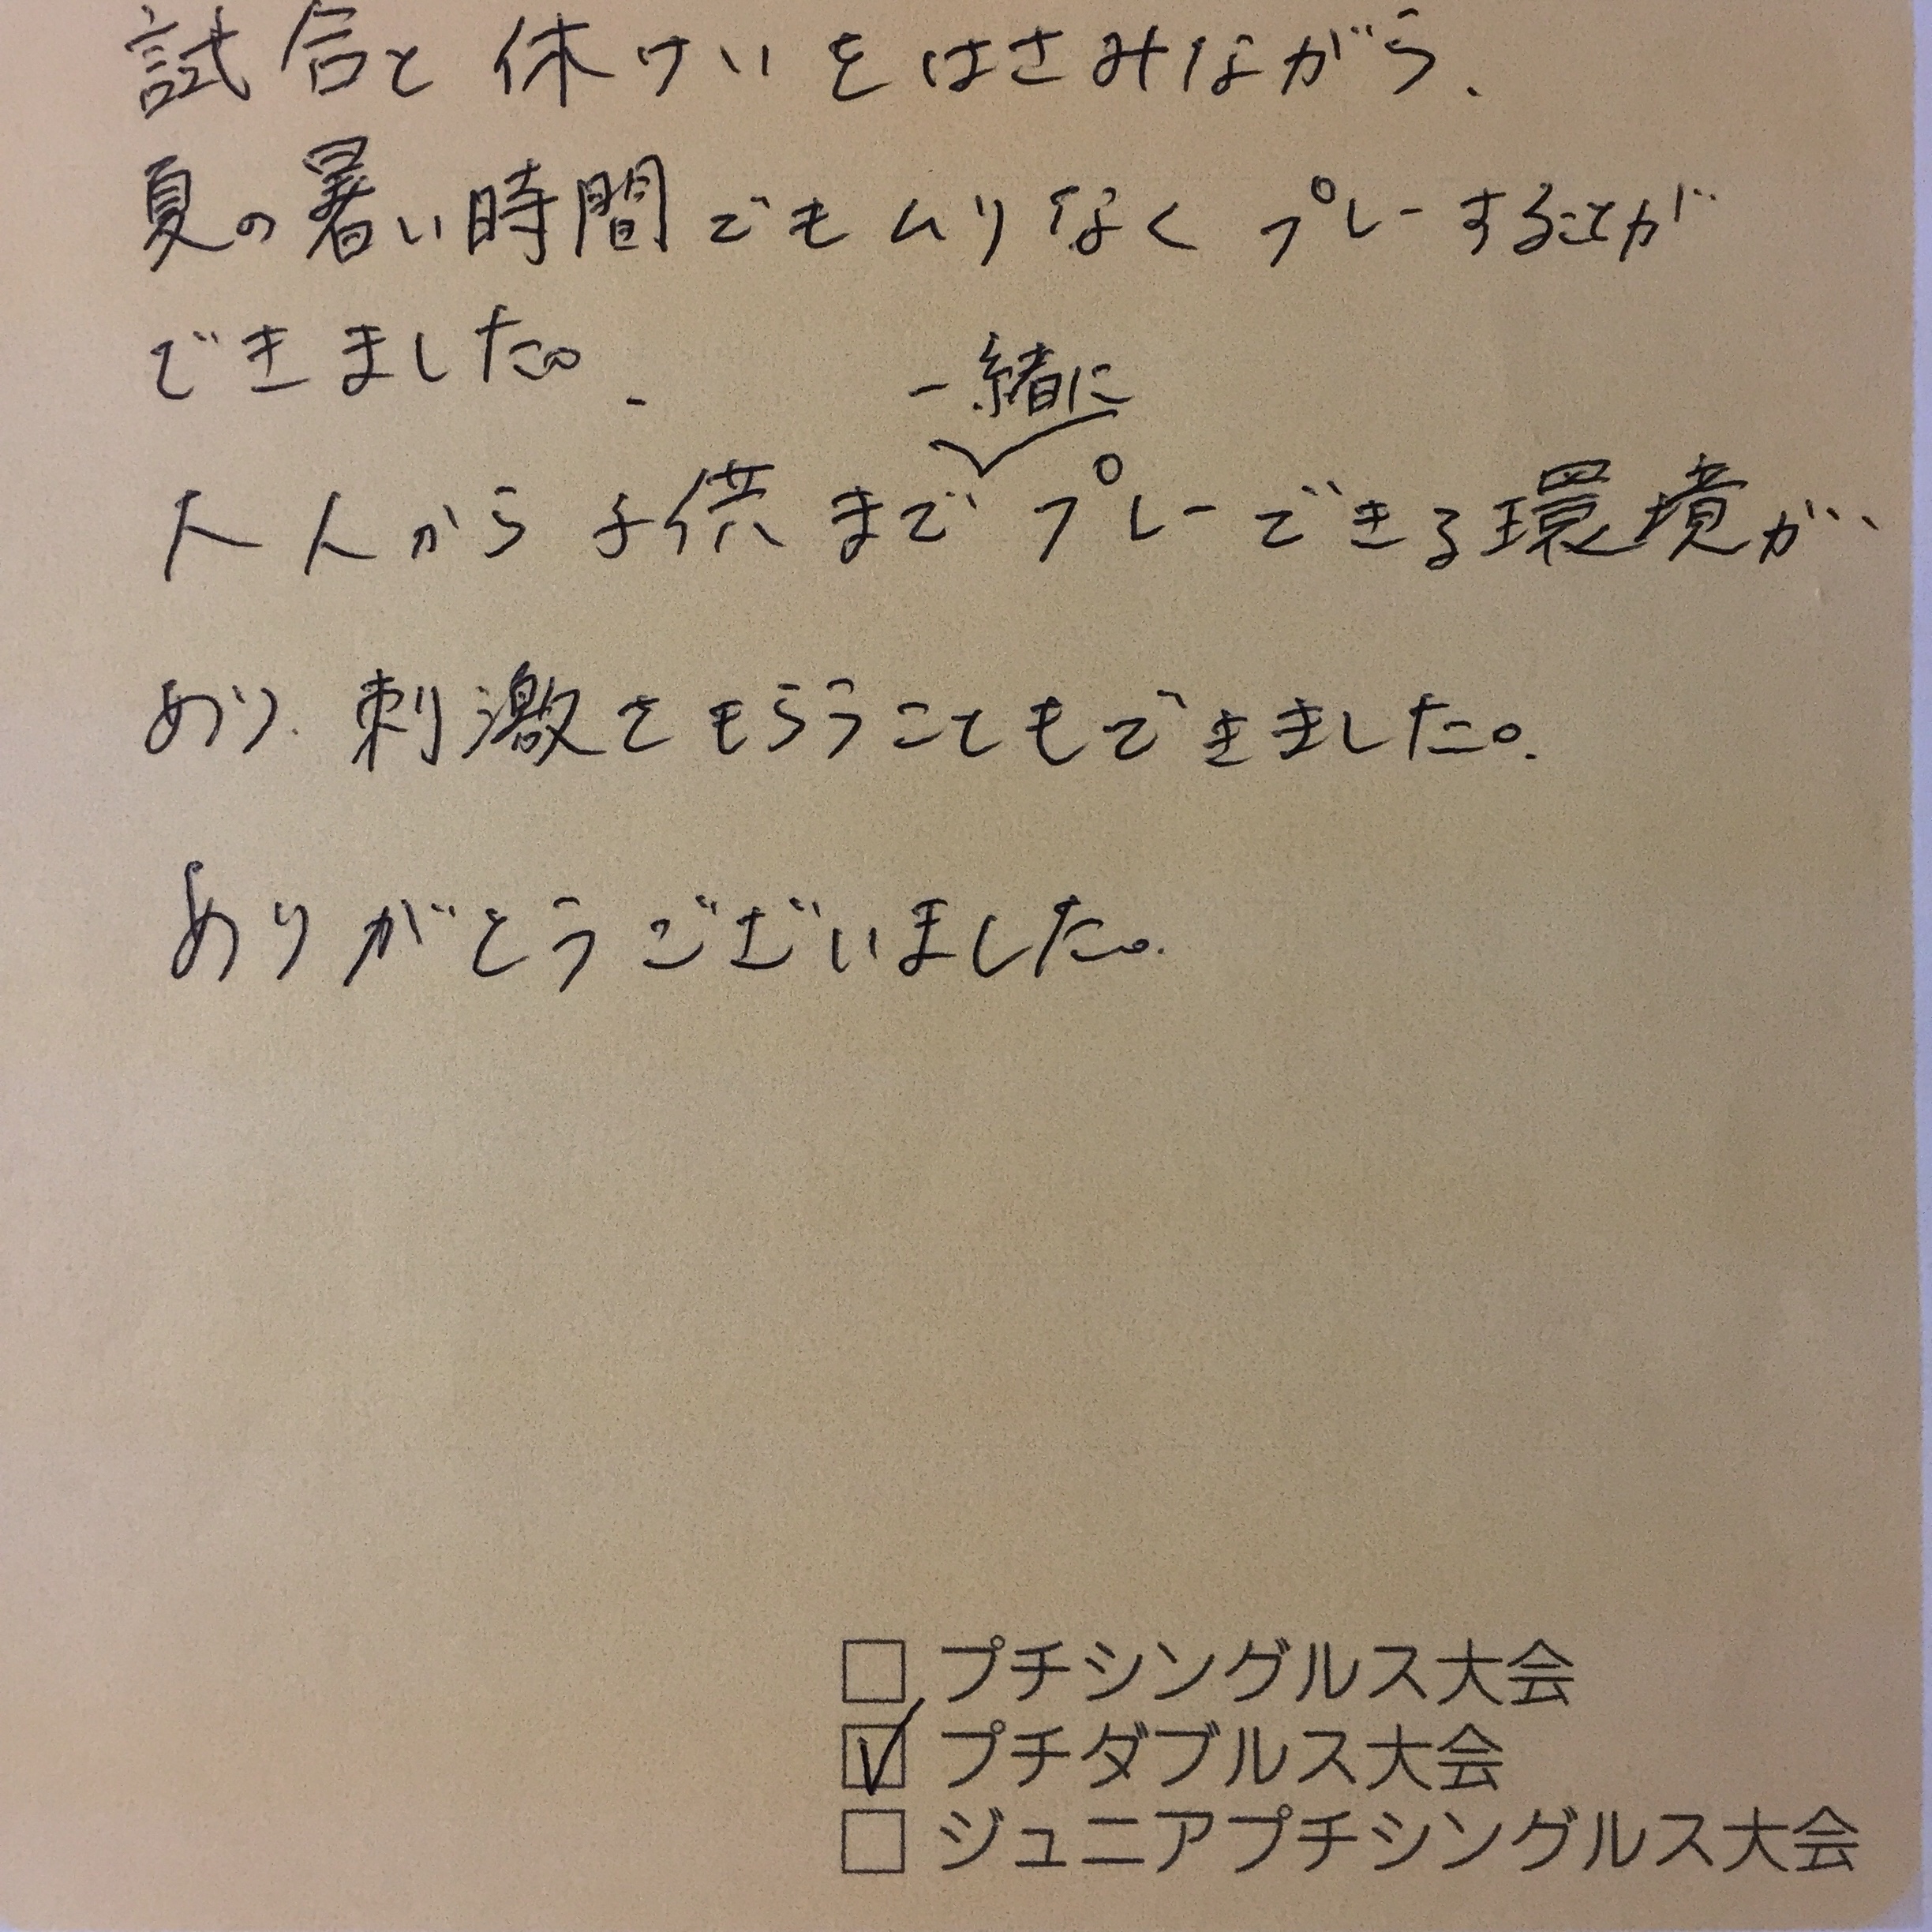 試合と休けいをはさみながら、
夏の暑い時間でもムリなくプレーすることが
できました。
一緒に
大人から子供までプレーできる環境が
あり、刺激をもらうこともできました。
ありがとうございました。
□ プチシングルス大会
☑ プチダブルス大会
□ ジュニアプチシングルス大会